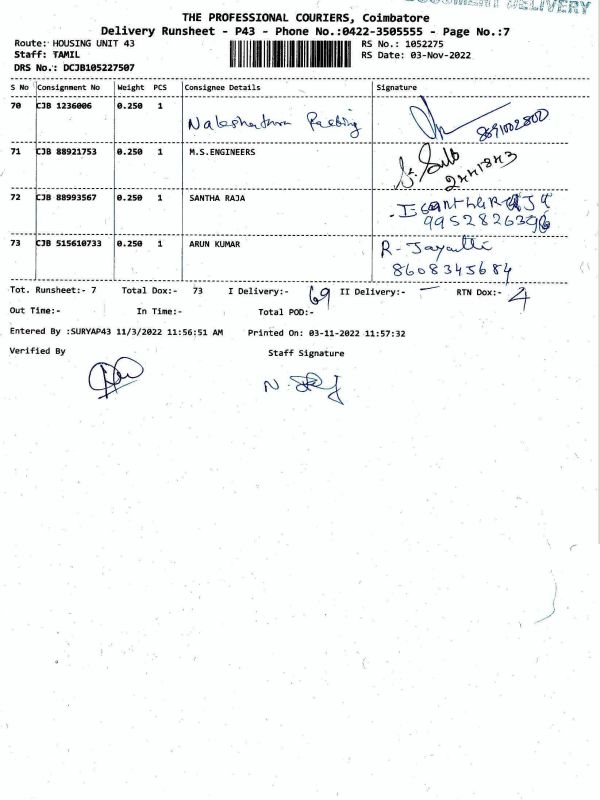 DOCUMENT DELIVERY
THE PROFESSIONAL COURIERS, Coimbatore
Delivery Runsheet - P43 - Phone No.:0422-3505555 - Page No.:7
Route: HOUSING UNIT 43 RS No.: 1052275
Staff: TAMIL RS Date: 03-Nov-2022
DRS No.: DCJB105227507
S No Consignment No Weight PCS Consignee Details Signature
70 CJB 1236006 0.250 1
71 CJB 88921753 0.250 1 M.S.ENGINEERS
2441843
72 CJB 88993567 0.250 1 SANTHA RAJA
73 CJB 515610733 0.250 1 ARUN KUMAR R-
8608345684
Tot. Runsheet:- 7 Total Dox:- 73 I Delivery:- 69 II Delivery:- — RTN Dox:- 4
Out Time:- In Time:- Total POD:-
Entered By :SURYAP43 11/3/2022 11:56:51 AM Printed On: 03-11-2022 11:57:32
Verified By Staff Signature